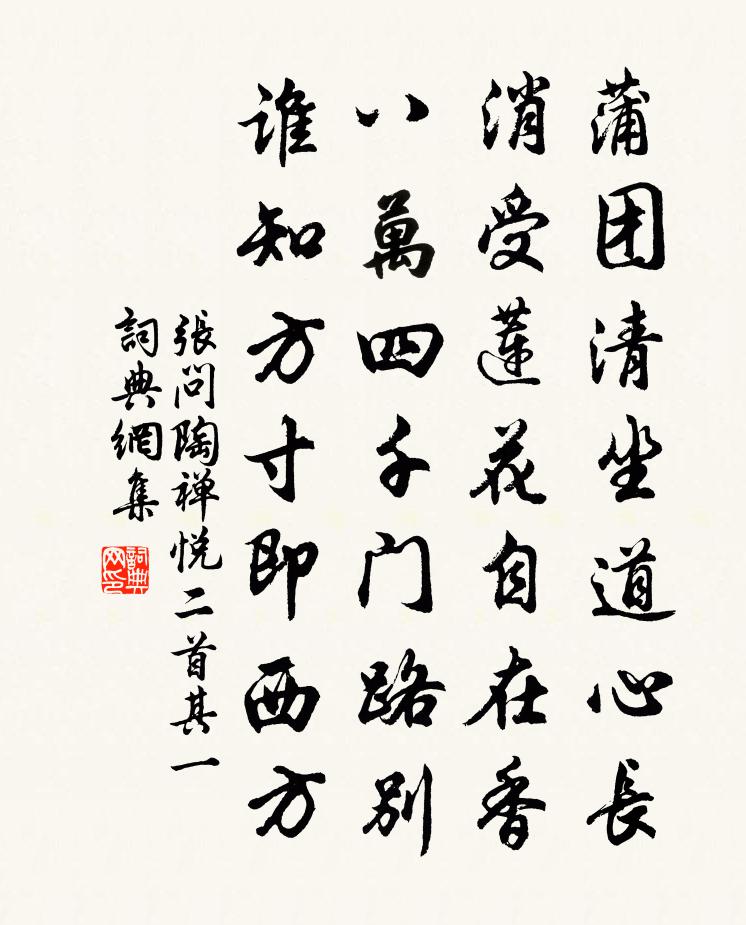 蒲团清坐道心長
消受蓮花自在香
八萬四千门路别
誰知方寸即西方
張问陶禅悦二首其一
詞典網集
詞典网印